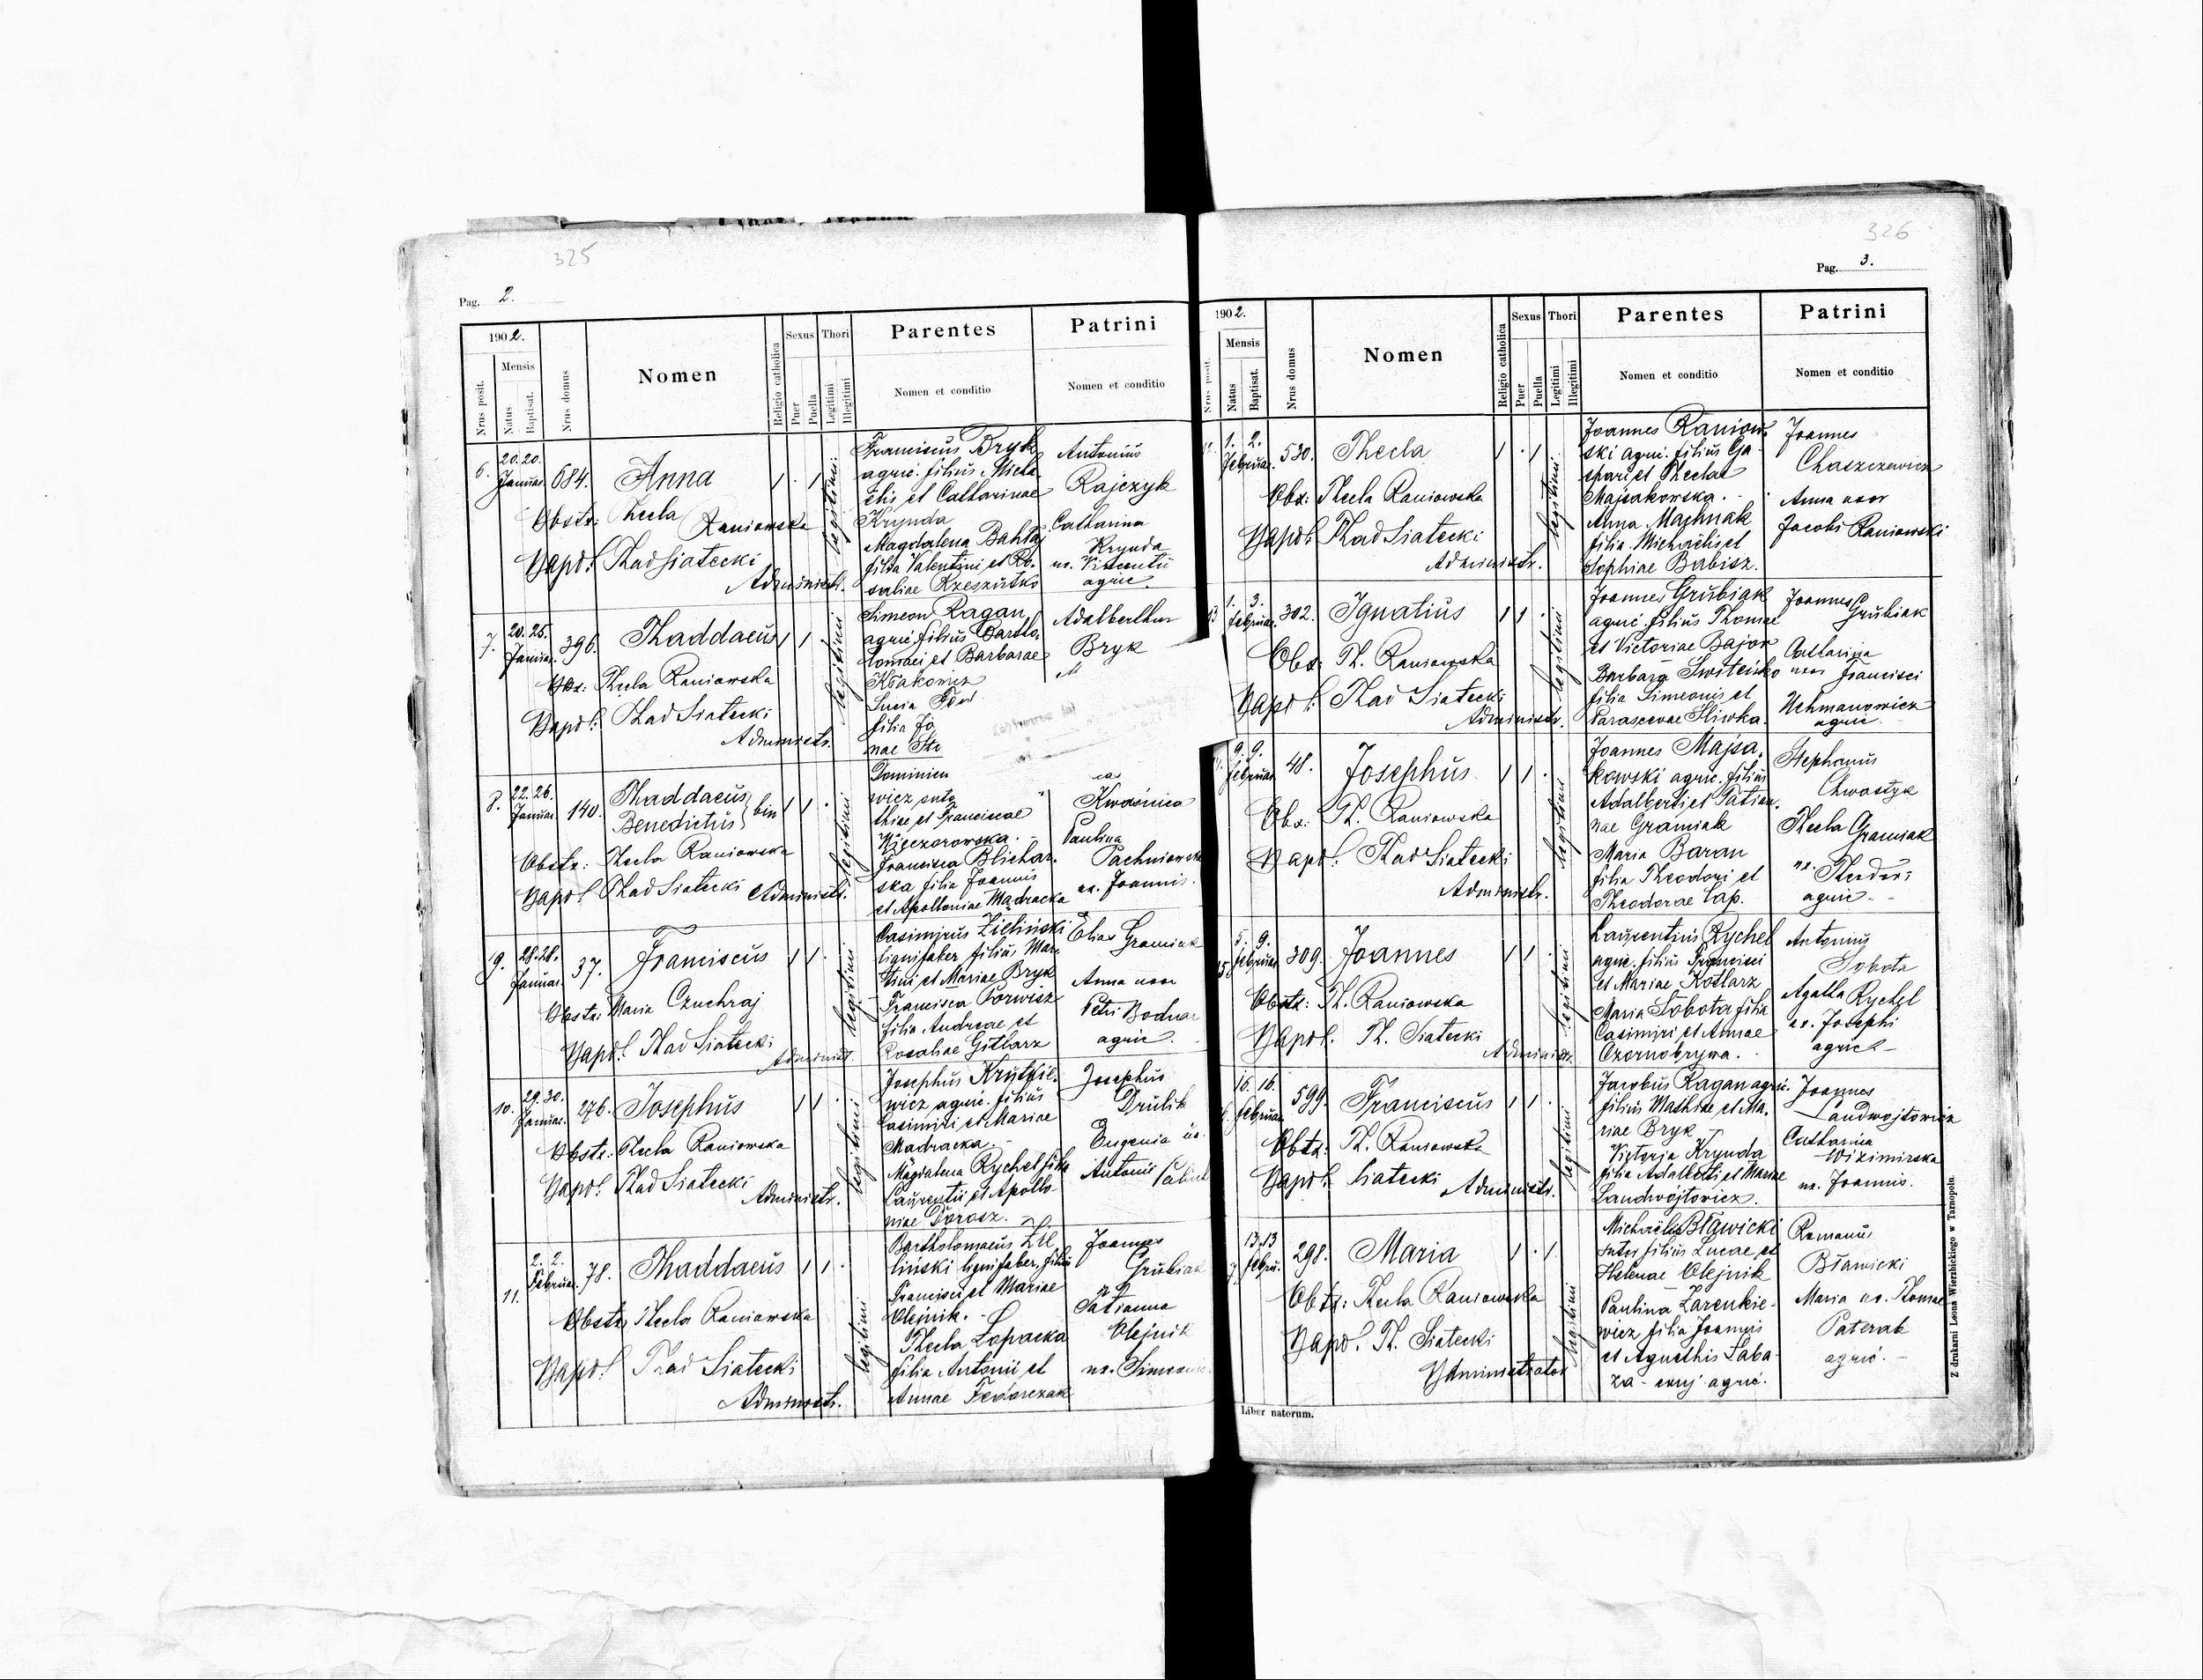 325
Pag. 2.
1902.
Nrus posit.
Mensis
Natus
Baptisat.
Nrus domus
Nomen
Religio catholica
Sexus
Puer
Puella
Thori
Legitimi
Illegitimi
Parentes
Nomen et conditio
Patrini
Nomen et conditio
6. 20. 20. Januar. 684. Anna 1 . 1 legitimi
Obstr: Thecla Raniowska
Bapt. Thad Siatecki
Administr.
Franciscus Bryk
agric. filius Micha-
elis et Catharinae
Krynda
Magdalena Bahtaj
filia Valentini et Ro-
saliae Rzeszutko
Antonius
Rajczyk
Catharina
Krynda
ux. Vincentii
agric.
7. 20. 25. Januar. 396. Thaddaeus 1 1 legitimi
Obs: Thecla Raniowska
Bapt. Thad Siatecki
Administr.
Simeon Ragan
agric. filius Bartho-
lomaei et Barbarae
Lucia
filia Jo
nae
Adalberthus
Bryk
8. 22. 26. Januar. 140. Thaddaeus
Benedictus } bin 1 1 . legitimi
Obstr: Thecla Raniowska
Bapt. Thad Siatecki Administr.
Dominicu
wicz
thiae et Franciscae
Wieczorowska. -
Francisca Blichar-
ska filia Joannis
et Apolloniae Madracka
Kwaśnica
Paulina
ux. Joannis.
9. 28. 28. Januar. 37. Franciscus 1 1 . legitimi
Obstr: Maria Czuchraj
Bapt. Thad Siatecki
Administ.
Casimirus Zieliński
lignifaber filius Mar-
tini et Mariae Bryk
Francisca Torwisz
filia Andreae et
Rosaliae Gitlarz
Elias Gramiak
Anna uxor
Petri Bodnar
agric.
10. 29. 30. Januar. 276. Josephus 1 1 . legitimi
Obstr: Thecla Raniowska
Bapt. Thad Siatecki
Administr.
Josephus
wicz agric. filius
Casimiri et Mariae
Madracka. -
Magdalena Rychel filia
Laurentii et Apollo-
niae Dorosz. -
Josephus
Drulik
Eugenia ux.
Antonii
11. 2. 2. Februar. 78. Thaddaeus 1 1 . legitimi
Obstr: Thecla Raniowska
Bapt. Thad Siatecki
Administr.
Bartholomaeus Zie-
liński lignifaber, filius
Francisci et Mariae
Olejnik. -
Thecla Łopacka
filia Antonii et
Annae Fedorczak
Joannes
Grubiak
Tatianna
Olejnik
ux. Simeonis
326
Pag. 3.
1902.
Nrus posit.
Mensis
Natus
Baptisat.
Nrus domus
Nomen
Religio catholica
Sexus
Puer
Puella
Thori
Legitimi
Illegitimi
Parentes
Nomen et conditio
Patrini
Nomen et conditio
1. 2. Februar. 530. Thecla 1 . 1 legitimi
Obs: Thecla Raniowska
Bapt. Thad Siatecki
Administr.
Joannes Raniow-
ski agric. filius Ga-
spari et Theclae
Majsakowska. -
Anna Machnak
filia Michaelis et
Sophiae Babisz.
Joannes
Chaszczewicz
Anna uxor
Jacobi Raniowski
1. 3. Februar. 302. Ignatius 1 1 . legitimi
Obs: Th. Raniowska
Bapt. Thad Siatecki
Administr.
Joannes Grubiak
agric. filius Thomae
et Victoriae Bajor
Barbara Switeńko
filia Simeonis et
Parascevae Sliwka.
Joannes
Grubiak
Catharina
uxor Francisci
Uchmanowicz
agric.
9. 9. Februar. 48. Josephus 1 1 . legitimi
Obs. Th. Raniowska
Bapt. Thad Siatecki
Administr.
Joannes Majsa-
kowski agric. filius
Adalberti et Tatian-
nae Gramiak
Maria Baran
filia Theodori et
Theodorae Cap.
Stephanus
Chwostyk
Thecla Gramiak
ux. Theodori
agric. -
5. 9. Februar. 309. Joannes 1 1 . legitimi
Obstr: Th. Raniowska
Bapt. Th. Siatecki
Administr.
Laurentius Rychel
agric. filius Francisci
et Mariae Kotlarz
Maria Sobota filia
Casimiri et Annae
Czornobrywa. -
Antonius
Sobota
Agatha Rychel
ux. Josephi
agric -
16. 16. Februar. 599. Franciscus 1 1 . legitimi
Obstr: Th. Raniowska
Bapt. Siatecki Administr.
Jacobus Ragan agric.
filius Mathiae et Ma-
riae Bryk -
Victoria Krynda
filia Adalberti et Mariae
Landwojtowicz.
Joannes
Landwojtowicz
Catharina
Wizimirska
ux. Joannis.
13. 13. Februar. 298. Maria 1 . 1. legitimi
Obstr: Thecla Raniowska
Bapt. Th. Siatecki
Administrator
Michaël Bławicki
sutor filius Lucae et
Helenae Olejnik
Paulina Zarenkie-
wicz filia Joannis
et Agnethis Łaba-
za - cuj. agric.
Romanus
Bławicki
Maria ux. Thomae
Paterak
agric. -
Liber natorum.
Z drukarni Leona Wierzbickiego w Tarnopolu.